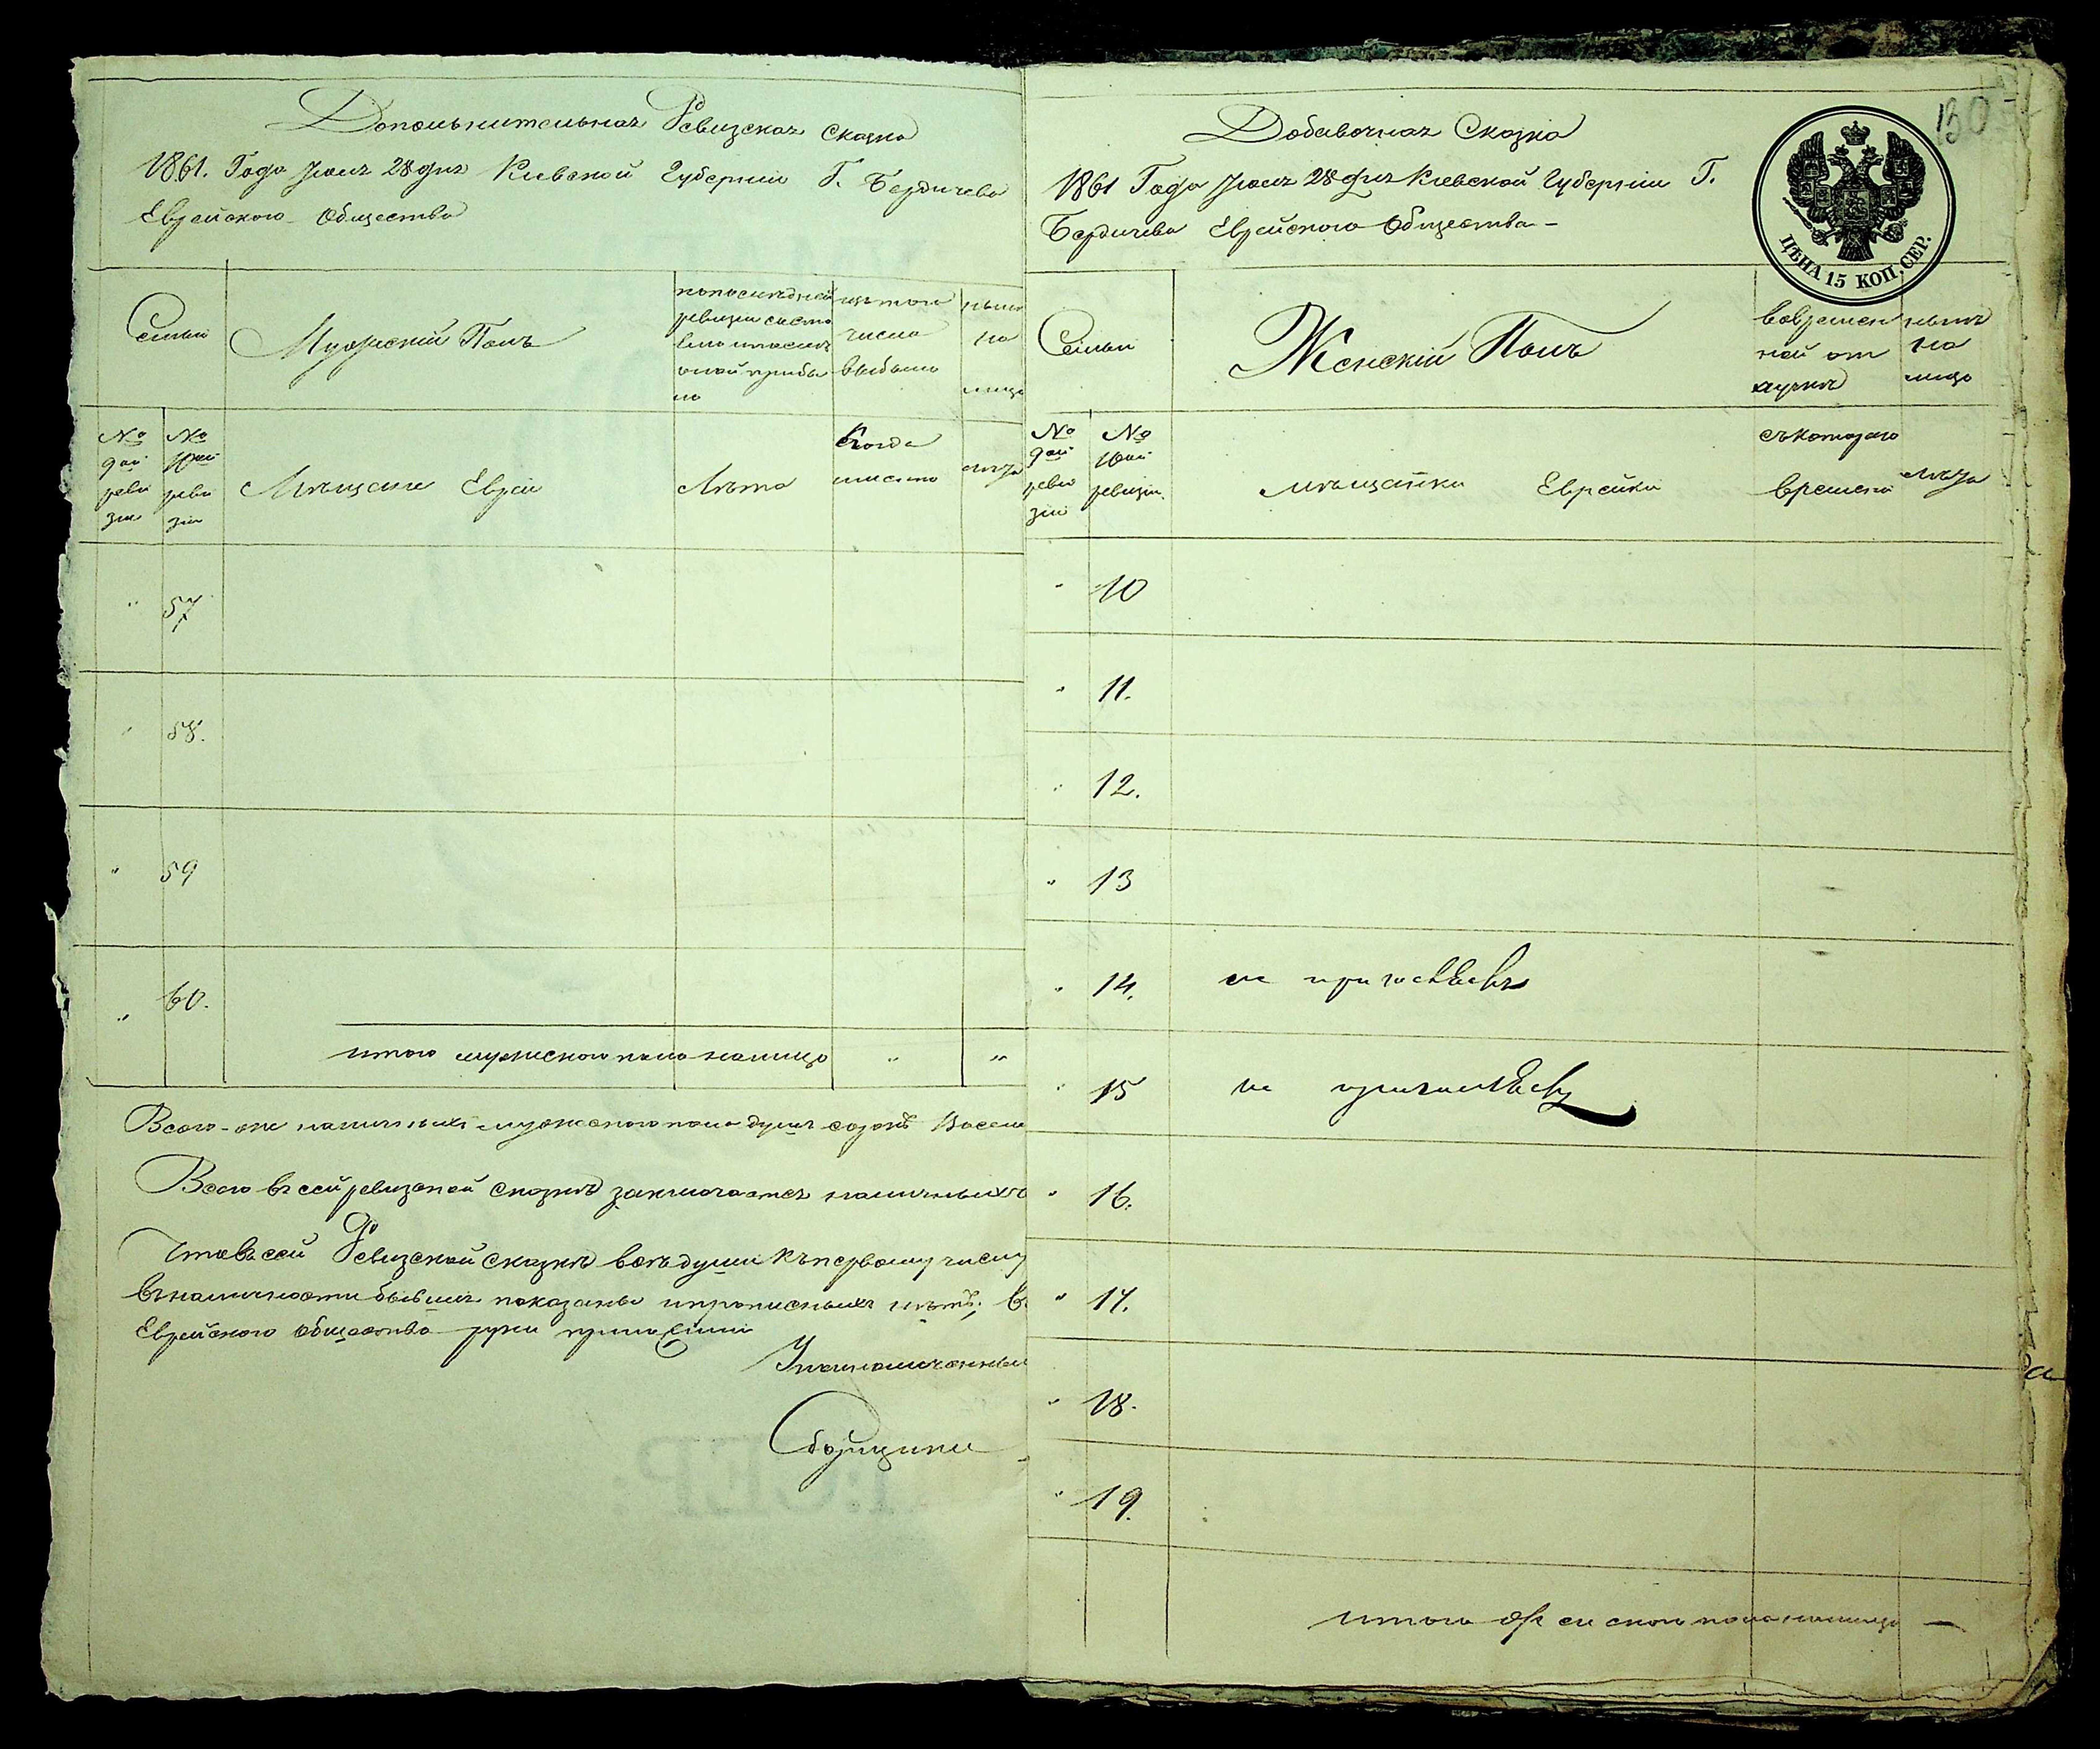 Дополнительная Ревизская Сказка
1861. Года Июля 28 дня Киевской Губернии Г. Бердичева
Еврейского Общества
Семьи
Мужеский Полъ
по последней
ревизии состо
яло и после
оной прибы
ло
изъ того
числа
выбыло
ныне
на
лицо
№
9ой
реви
зии
№
10ой
реви
зіи
Мещане Евреи
Лета
Когда
именно
лета
" 57
" 58.
" 59
" 60.
итого мужеского пола налицо " "
Всего-же наличныхъ мужеского пола душъ сорокъ Восем
Всего въ сей ревизской сказке заключается наличныхъ
Что въ сей Ревизской сказке все души къ первому числу
въ наличности бывшия показаны и прописныхъ нетъ; в
Еврейского общества руки приложили
Уполномоченныи
Сборщики
130
Добавочная Сказка
1861 Года Июля 28 дня Киевской Губерніи Г.
Бердичева Еврейского Общества -
ЦѢНА 15 КОП. СЕР.
Семьи
Женскій Полъ
во времен
ной от
лучке
ныне
на
лицо
№
9ой
реви
зіи
№
10ой
ревизіи.
мещанки Еврейки
съ которого
времени
лета
" 10
" 11.
" 12.
" 13
" 14.
" 15
" 16.
" 17.
" 18.
" 19.
итого женского пола налицо —